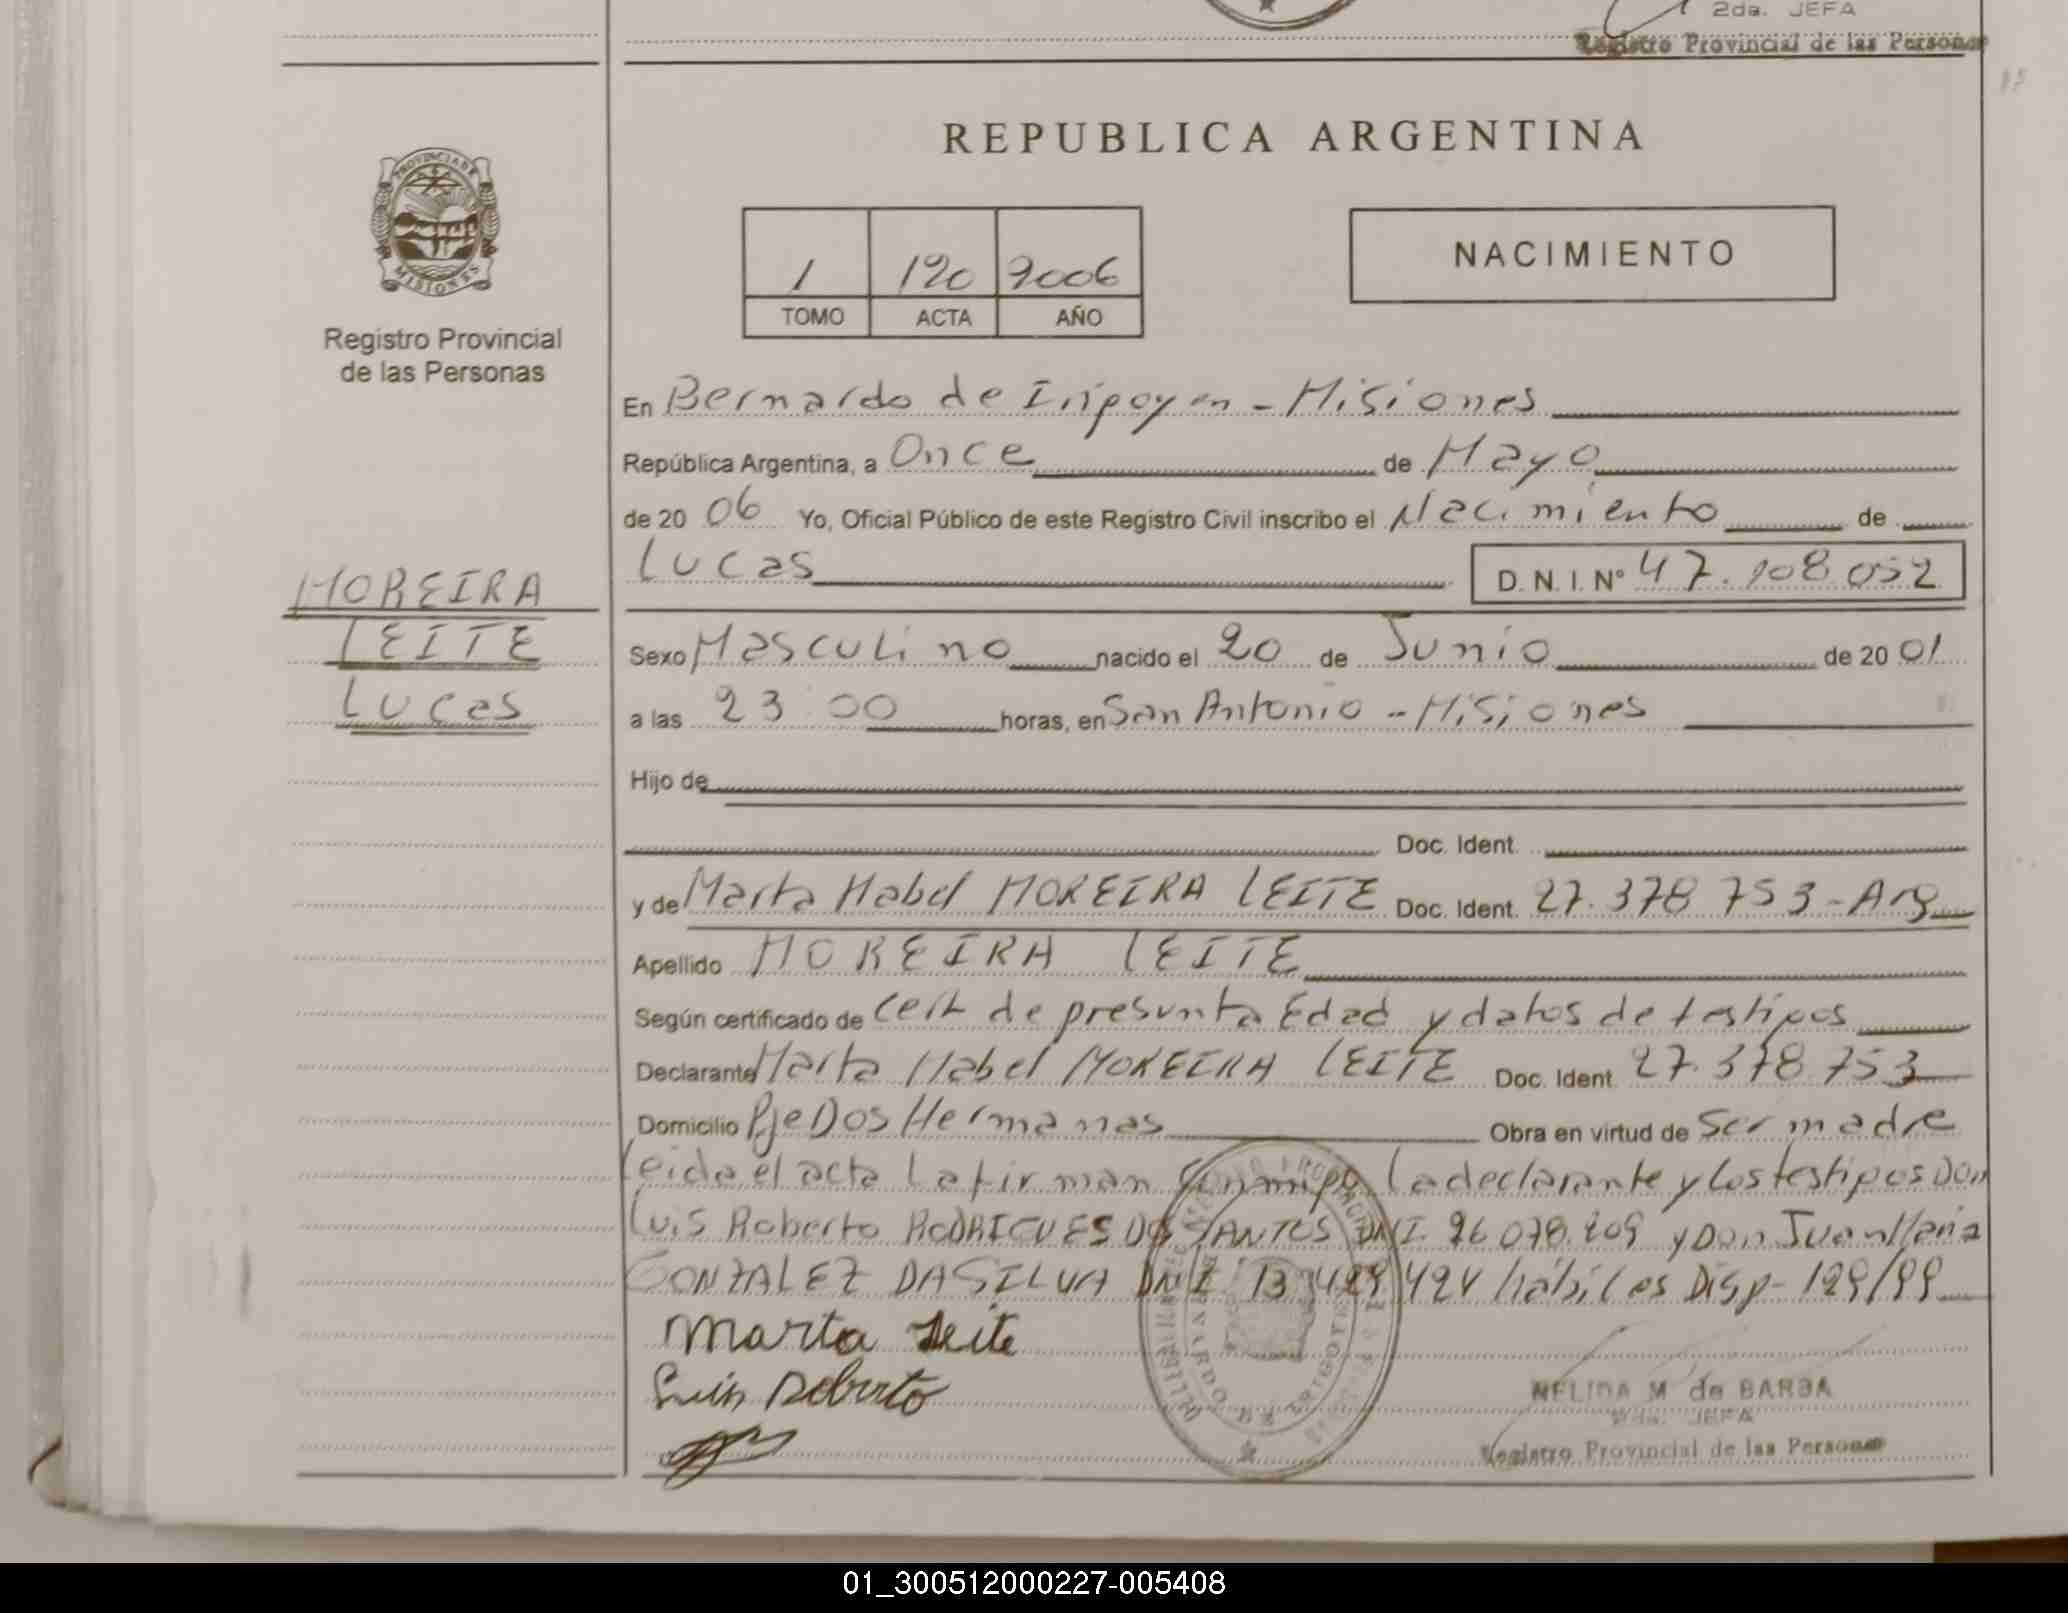 2da. JEFA
Registro Provincial de las Personas
REPUBLICA ARGENTINA
PROVINCIA DE MISIONES
Registro Provincial
de las Personas
1 120 2006
TOMO ACTA AÑO
NACIMIENTO
En Bernardo de Irigoyen - Misiones
República Argentina, a Once de Mayo
de 20 06 Yo, Oficial Público de este Registro Civil inscribo el Nacimiento de
Lucas D. N. I. Nº 47.108.052
MOREIRA
LEITE
Lucas
Sexo Masculino nacido el 20 de Junio de 20 01
a las 23:00 horas, en San Antonio - Misiones
Hijo de
Doc. Ident.
y de Marta Mabel MOREIRA LEITE Doc. Ident. 27.378 753 - Arg
Apellido MOREIRA LEITE
Según certificado de Cert de presunta Edad y datos de testigos
Declarante Marta Mabel MOREIRA LEITE Doc. Ident. 27.378.753
Domicilio Pje Dos Hermanas Obra en virtud de Ser madre
Leida el acta la firman conmigo la declarante y los testigos Don
Luis Roberto RODRIGUES DOS SANTOS DNI 26.078.209 y Don Juan Maria
GONZALEZ DASILVA DNI 13 429 424 hábiles Disp- 129/99
Marta Leite
Luis Roberto
NELIDA M de BARBA
2da. JEFA
Registro Provincial de las Personas
01_300512000227-005408